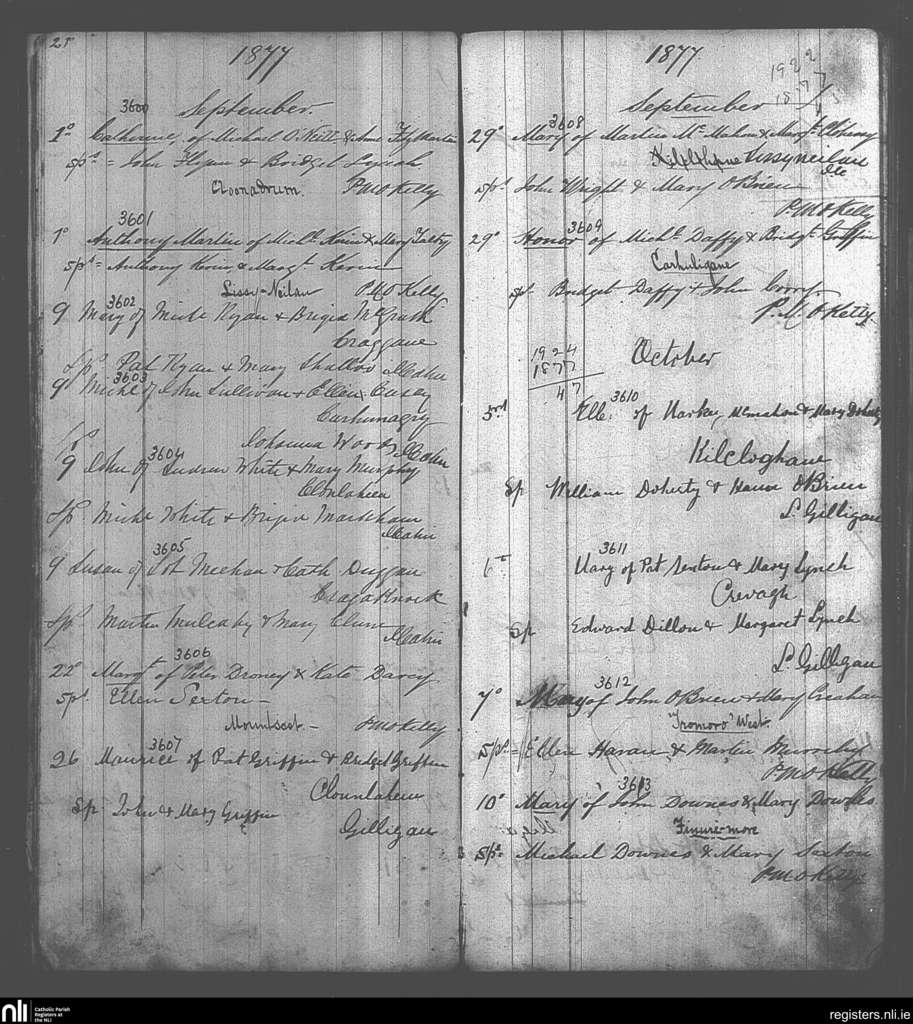 25
1877
September.
3600
1° Catherine, of Michael O'Neill & Anne FitzMartin
Sps = John Flynn & Bridget
Cloonadrum. P. M O Kelly
3601
1° Anthony Martin of Michl. Kerin & Mary Talty
Sps = Anthony Kerin & Margt. Kerin
Lissy-Neilan P. M O Kelly
3602
9 Mary of Michl Ryan & Brigid McGrath
Craggane
Sps Pat Ryan & Mary
3603
9 Michl of John Sullivan & Ellen Casey
Carhumagry
Sp Johanna Woods
3604
9 John of Andrew White & Mary Murphy
Clonlaheen
Sp Michl White & Brigid Markham
3605
9 Susan of Pat Meehan & Cath Duggan
Cragaknock
Sps Martin Mulcahy & Mary Clune
3606
22° Margt of Peter Droney & Kate Darcy
Sps. Ellen Sexton –
Mountscot – P M O Kelly
3607
26 Maurice of Pat Griffin & Bridget Griffin
Clounlaheen
Sp John & Mary Griffin
Gilligan
1877.
1922
1877
45
September
3608
29° Mary of Martin Mc Mahon & Margt Clohessy
Lissyneilan
Sps. John Wright & Mary O'Brien
P. M O Kelly
3609
29° Honor of Michl. Daffy & Bridgt. Griffin
Carhuligane
Sp. Bridget Daffy & John Corry.
P. M. O Kelly.
1924
1877
47
October
3610
3rd Elle. of Harkey McMahon & Mary Doherty
Kilcloghane
Sp William Doherty & Hanna O'Brien
L. Gilligan
3611
6th Mary of Pat Sexton & Mary Lynch
Crevagh
Sp Edward Dillon & Margaret Lynch
L. Gilligan
3612
7° Mary of John O'Brien & Mary Creehan
"Tromoro" West.
Sps. = Ellen Haran & Martin
P M O Kelly
3613
10° Mary of John Downes & Mary Downes
Finure-more
Sps. Michael Downes & Mary Sexton
P M O Kelly.
nli
Catholic Parish
Registers at
the NLI
registers.nli.ie